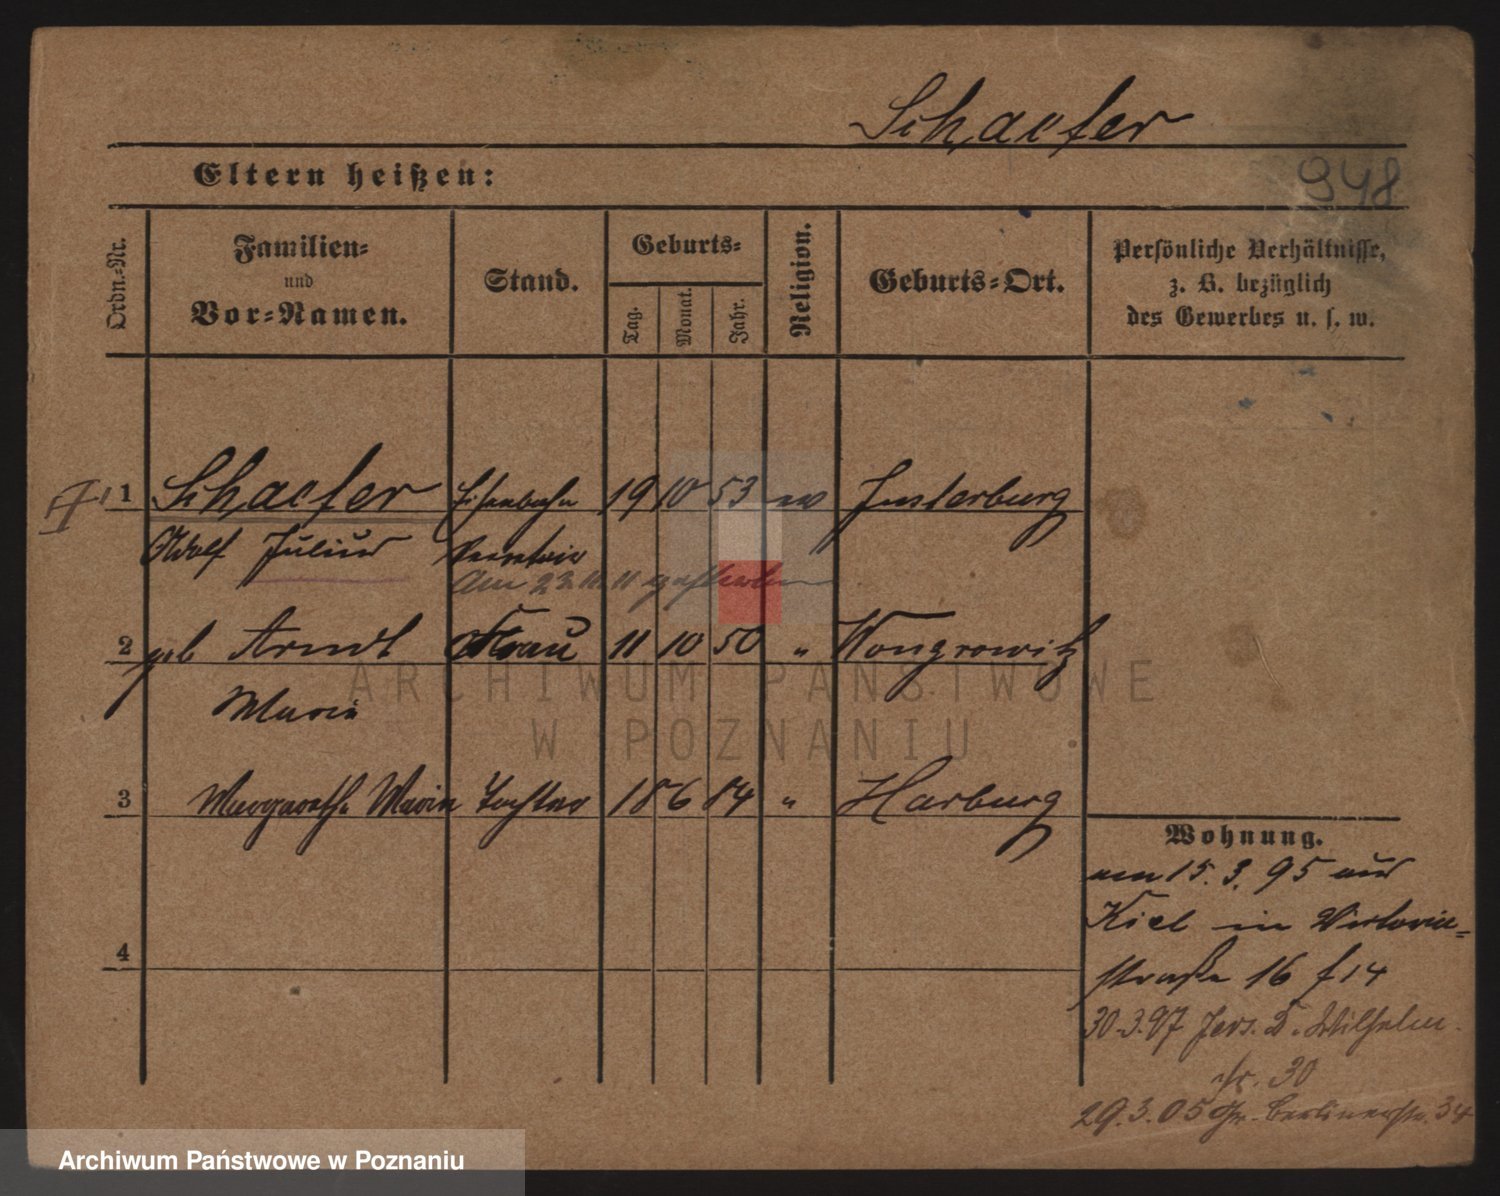 Schaefer
Eltern heißen:
948
Ordn.-Nr.
Familien-
und
Vor-Namen.
Stand.
Geburts-
Tag.
Monat.
Jahr.
Religion.
Geburts-Ort.
Persönliche Verhältnisse,
z. B. bezüglich
des Gewerbes u. s. w.
1 Schaefer Eisenbahn 19 10 53 ev Insterburg
Adolf Julius Secretair
Am 23.11.11 gestorben
2 geb Arndt Frau 11 10 50 " Wongrowitz
Marie
3 Margarethe Marie Tochter 18 6 84 " Harburg
4
Wohnung.
am 15. 3. 95 aus
Kiel in Victoria-
straße 16 f 14
30.3.97 Jers. . Wilhelm
str. 30
29.3.05 Gr. Berlinerstr. 34
ARCHIWUM PAŃSTWOWE
W POZNANIU
Archiwum Państwowe w Poznaniu